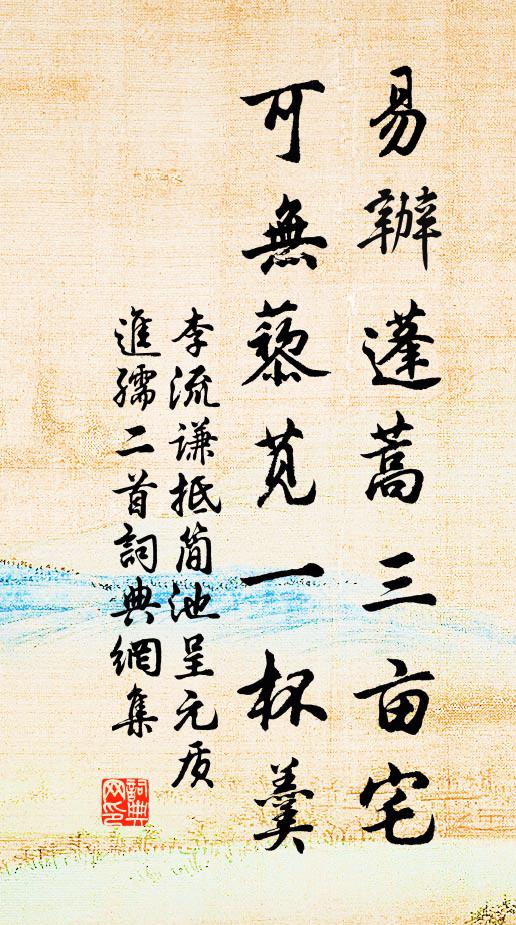 易辦蓬蒿三亩宅
可無藜莧一杯羹
李流謙抵簡池呈元质
進孺二首詞典網集
詞典
网印